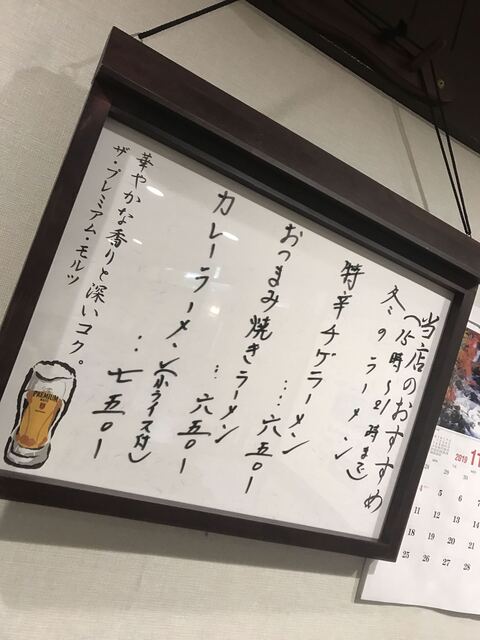 当店のおすすめ
(15時〜21時まで)
冬のラーメン
特辛チゲラーメン
‥‥六五〇ー
おつまみ焼きラーメン
‥‥六五〇ー
カレーラーメン(小ライス付)
‥七五〇ー
華やかな香りと深いコク。
ザ・プレミアム・モルツ
PREMIUM
2019 11
4 5 6 7
11 12 13 14
18 19 20 21
25 26 27 28